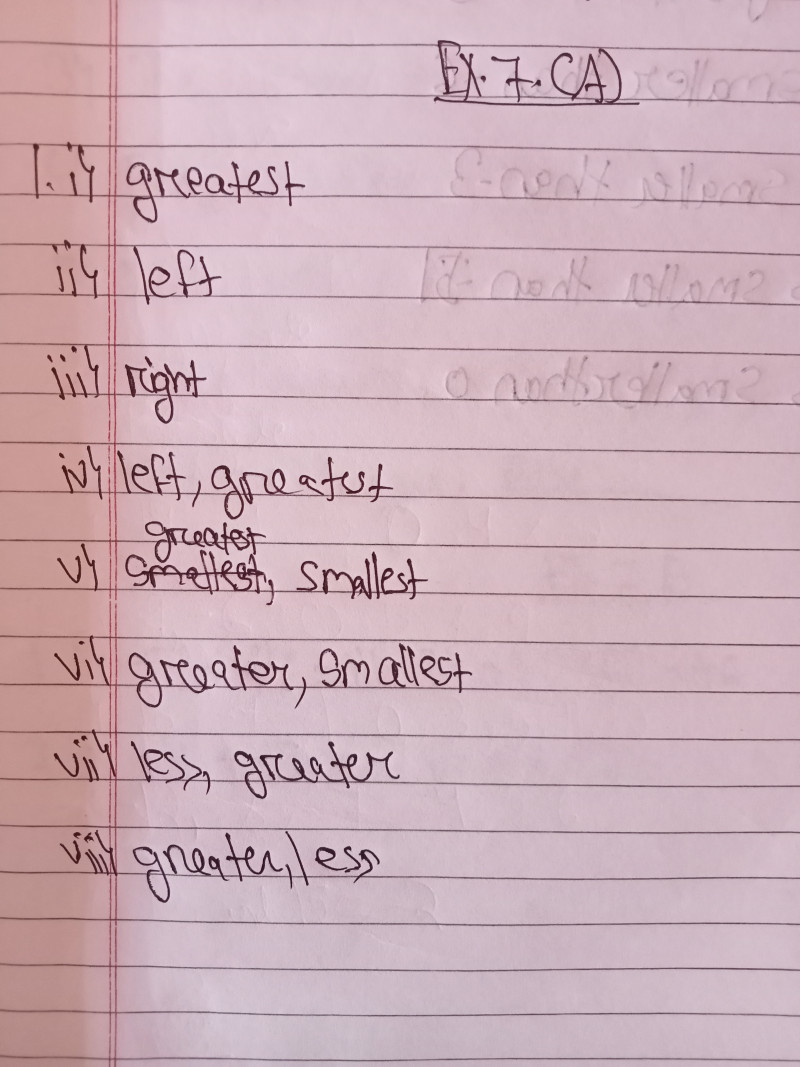 Ex. 7. (A)
1. i) greatest
ii) left
iii) right
iv) left, greatest
greatest
v) smallest, smallest
vi) greater, smallest
vii) less, greater
viii) greater, less